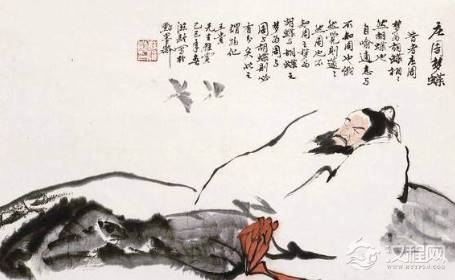 庄周梦蝶
昔者庄周
梦为胡蝶栩〻
然胡蝶也
自喻適志与
不知周也俄
然覺則蘧〻
然周也不
知周之梦为
胡蝶与胡蝶之
梦为周与
周与胡蝶則必
有分矣此之
谓物化
先生雅賞
汉程网